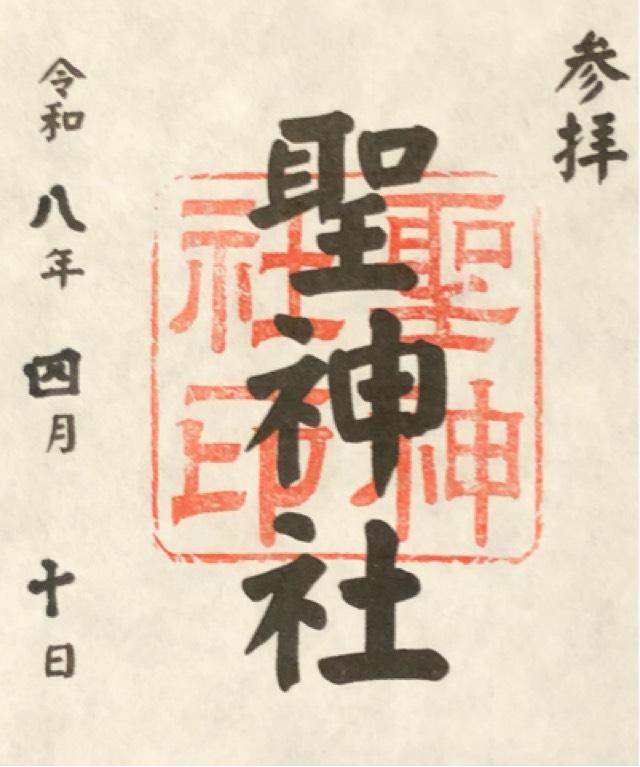 参拝
聖神社
聖神
社印
令和八年四月十日